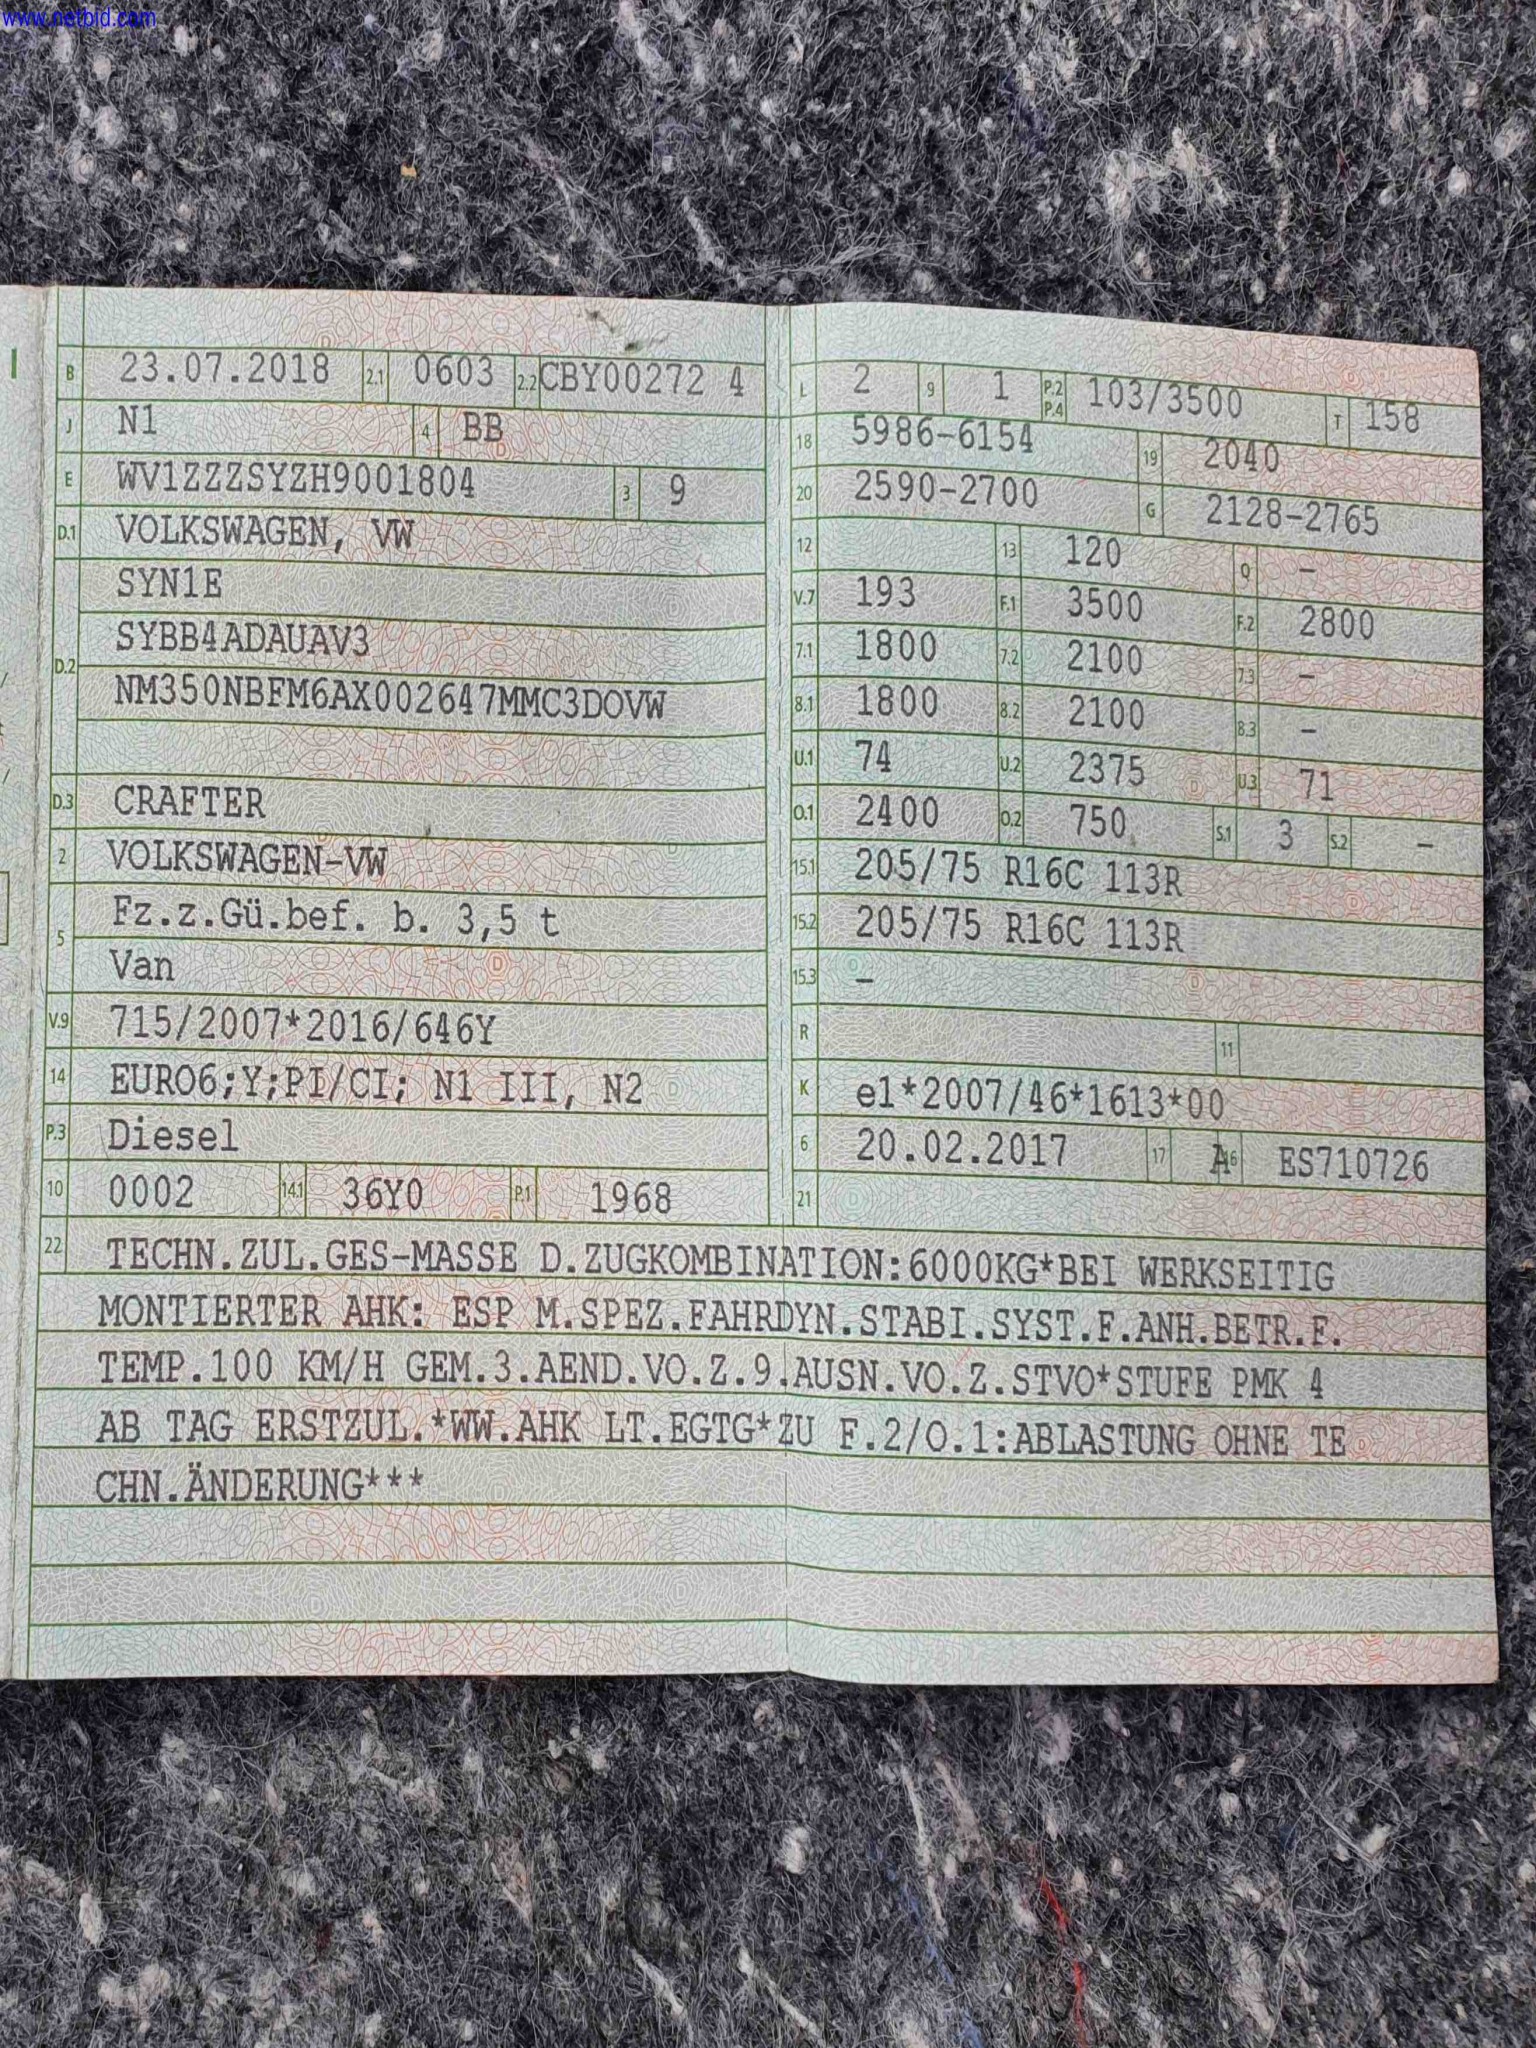 www.netbid.com
B 23.07.2018 2.1 0603 2.2 CBY00272 4
J N1 4 BB
E WV1ZZZSYZH9001804 3 9
D.1 VOLKSWAGEN, VW
SYN1E
D.2 SYBB4ADAUAV3
NM350NBFM6AX002647MMC3DOVW
D.3 CRAFTER
2 VOLKSWAGEN-VW
5 Fz.z.Gü.bef. b. 3,5 t
Van
V.9 715/2007*2016/646Y
14 EURO6;Y;PI/CI; N1 III, N2
P.3 Diesel
10 0002 14.1 36Y0 P.1 1968
L 2 9 1 P.2 P.4 103/3500 T 158
18 5986-6154 19 2040
20 2590-2700 G 2128-2765
12 13 120 Q –
V.7 193 F.1 3500 F.2 2800
7.1 1800 7.2 2100 7.3 –
8.1 1800 8.2 2100 8.3 –
U.1 74 U.2 2375 U.3 71
O.1 2400 O.2 750 S.1 3 S.2 –
15.1 205/75 R16C 113R
15.2 205/75 R16C 113R
15.3 –
R 11
K e1*2007/46*1613*00
6 20.02.2017 17 A 16 ES710726
21
22 TECHN.ZUL.GES-MASSE D.ZUGKOMBINATION:6000KG*BEI WERKSEITIG
MONTIERTER AHK: ESP M.SPEZ.FAHRDYN.STABI.SYST.F.ANH.BETR.F.
TEMP.100 KM/H GEM.3.AEND.VO.Z.9.AUSN.VO.Z.STVO*STUFE PMK 4
AB TAG ERSTZUL.*WW.AHK LT.EGTG*ZU F.2/O.1:ABLASTUNG OHNE TE
CHN.ÄNDERUNG***